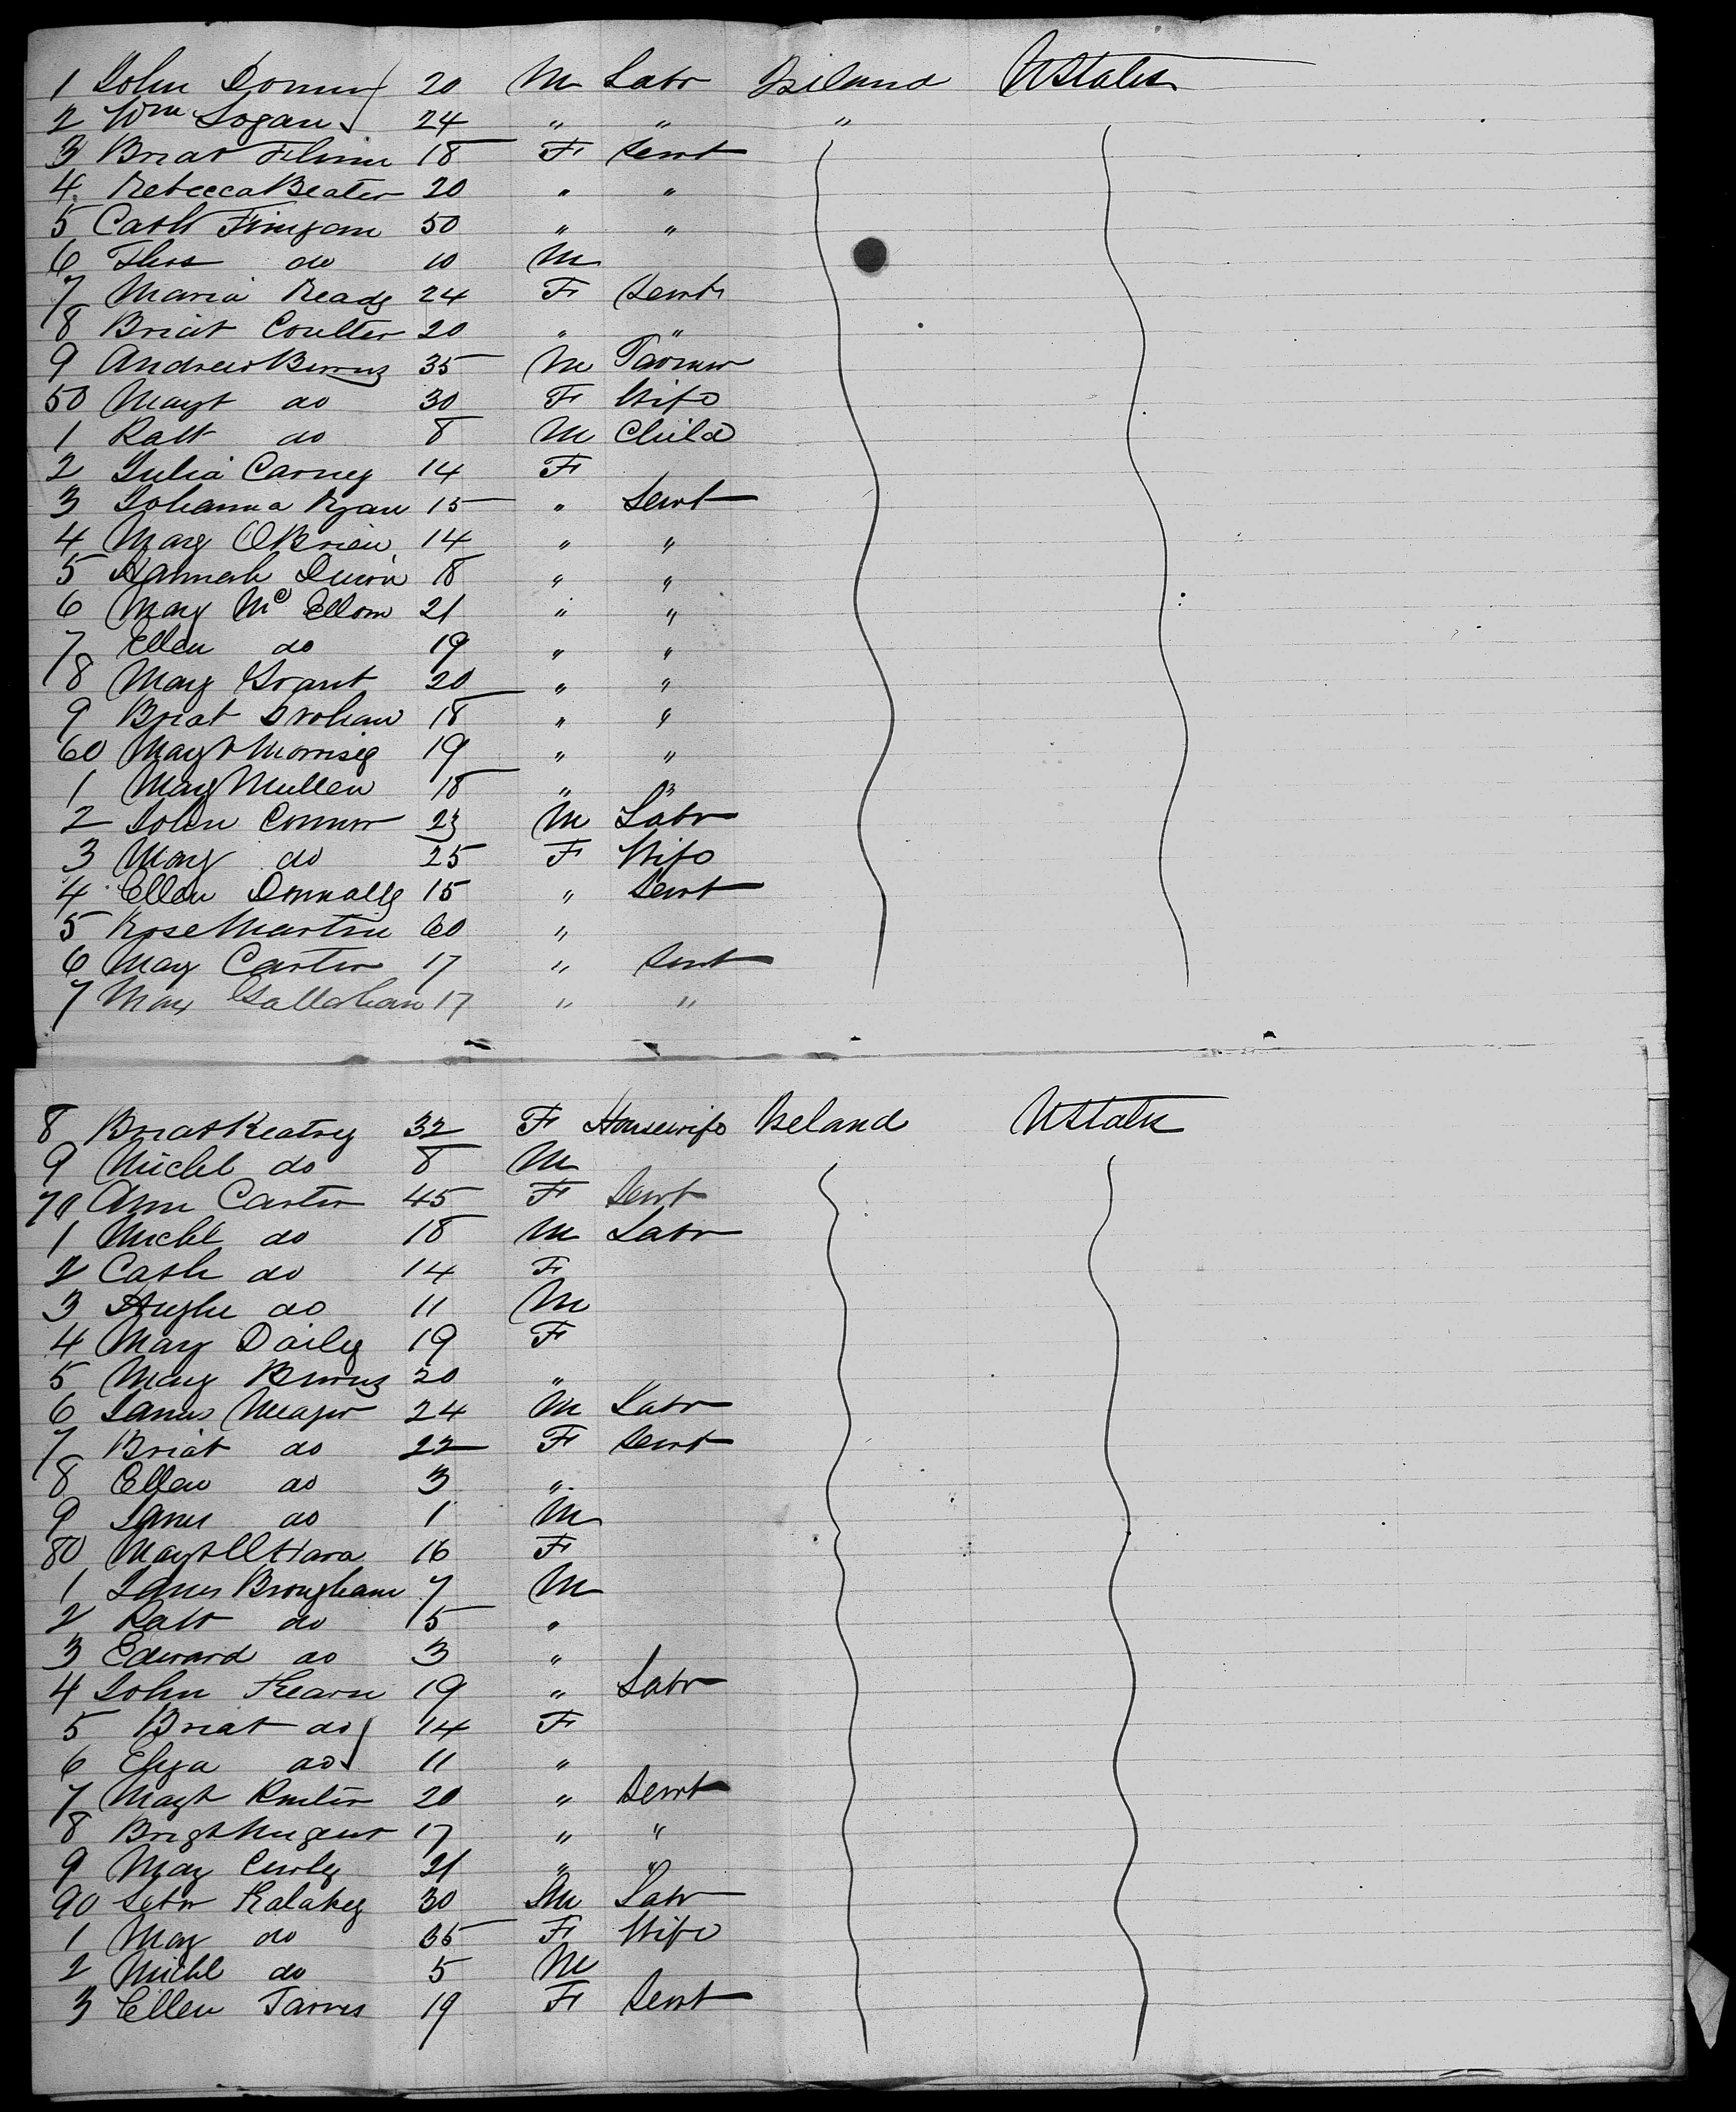 1 John 20 M Labr Ireland UStates
2 Wm Logan 24 " " "
3 Bridt Flinn 18 F Servt
4 Rebecca Beater 20 " "
5 Cath Finigan 50 " "
6 Thos do 10 M
7 Maria Ready 24 F Servt
8 Bridt Coulter 20 " "
9 Andrew Burns 35 M Farmer
50 Magt do 30 F Wife
1 Patt do 8 M Child
2 Julia Carney 14 F
3 Johanna Ryan 15 " Servt
4 Mary OBrien 14 " "
5 Hannah 18 " "
6 Mary Mc Ellom 21 " "
7 Ellen do 19 " "
8 Mary Grant 20 " "
9 Bridt Drohan 18 " "
60 Magt Morrisey 19 " "
1 Mary Mullen 18 " "
2 John Connor 23 M Labr
3 Mary do 25 F Wife
4 Ellen Donnally 15 " Servt
5 Rose Martin 60 "
6 Mary Carter 17 " Servt
7 Mary Gallahan 17 " "
8 Bridt Keatney 32 F Housewife Ireland UStates
9 Michl do 8 M
70 Ann Carter 45 F Servt
1 Michl do 18 M Labr
2 Cath do 14 F
3 Hugh do 11 M
4 Mary Daily 19 F
5 Mary Burns 20 "
6 James Meager 24 M Labr
7 Bridt do 22 F Servt
8 Ellen do 3 "
9 James do 1 M
80 Magt OHara 16 F
1 James Brougham 7 M
2 Patt do 5 "
3 Edward do 3 "
4 John Kearn 19 " Labr
5 Bridt do 14 F
6 Eliza do 11 "
7 Magt 20 " Servt
8 Brigt Nugent 17 " "
9 Mary Curley 21 " "
90 Kalahey 30 M Labr
1 Mary do 35 F Wife
2 Michl do 5 M
3 Ellen Jarvis 19 F Servt